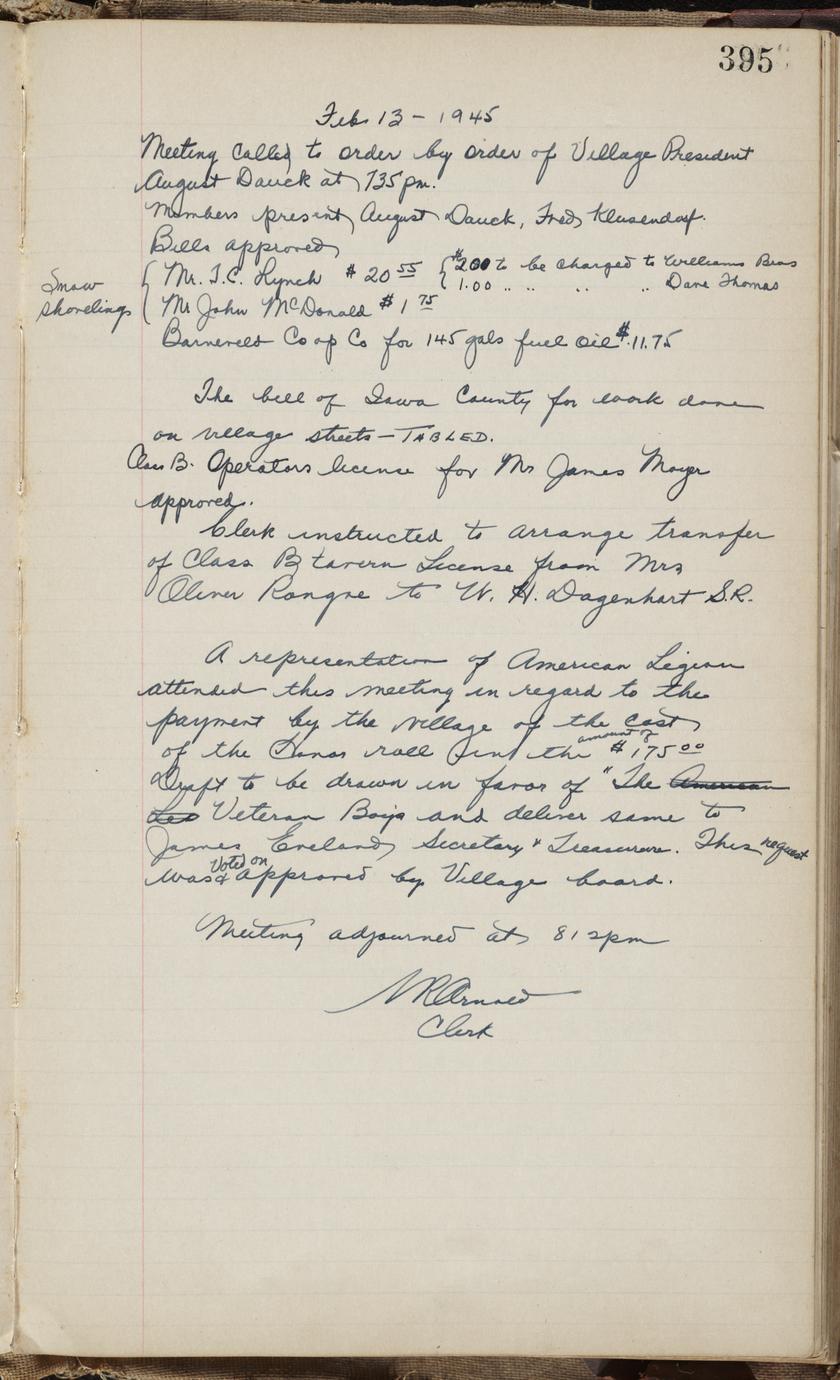 395
Feb 13 - 1945
Meeting called to order by order of Village President
August Dauck at 735 pm.
Members present, August Dauck, Fred Klusendorf.
Bills approved
Snow shovelings
Mr. T.C. Lynch $20 55 $2.00 to be charged to Williams Bros
1.00 " " " " Dave Thomas
Mr John McDonald $1 75
Barneveld Co op Co for 145 gals fuel oil $.11.75
The bill of Iowa County for work done
on village streets - TABLED.
Class B. Operators license for Mr James Moyer
approved.
Clerk instructed to arrange transfer
of Class B tavern License from Mrs
Oliver Rongne to W. H. Dagenhart S.R.
A representation of American Legion
attended this meeting in regard to the
payment by the village of the cost
of the Honor roll in the amount of $175 00
Draft to be drawn in favor of "The American
Leg Veteran Boys and deliver same to
James Eveland, Secretary & Treasurer. This request
was voted on & approved by Village board.
Meeting adjourned at 812 pm
Arnold
Clerk